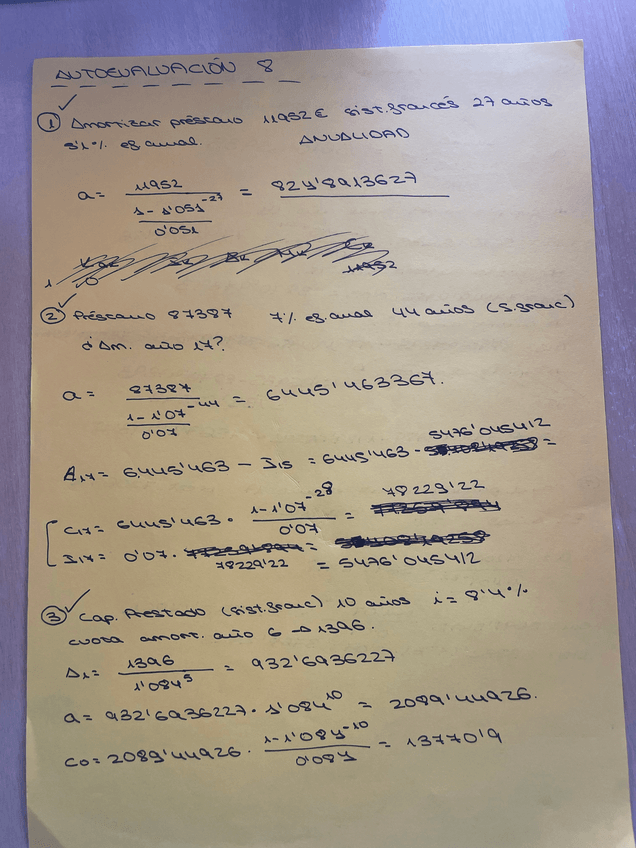 AUTOEVALUACIÓN 8
① Amortizar préstamo 11952€ sist.francés 27 años
5'1% ef.anual. ANUALIDAD
a = 11952 / ((1 - 1'051^-27) / 0'051) = 824'8913627
11952
② Préstamo 87387 7% ef.anual 44 años (s.franc)
¿Am. año 17?
a = 87387 / ((1 - 1'07^-44) / 0'07) = 6445'463367.
A17 = 6445'463 - I15 = 6445'463 - 5476'045412 =
C17 = 6445'463 · (1 - 1'07^-28) / 0'07 = 78229'22
I17 = 0'07 · 78229'22 = 5476'045412
③ Cap. Prestado (sist.franc) 10 años i = 8'4%
cuota amort. año 6 → 1396.
A1 = 1396 / 1'084^5 = 932'6936227
a = 932'6936227 · 1'084^10 = 2089'44926.
C0 = 2089'44926 · (1 - 1'084^-10) / 0'084 = 13770'9